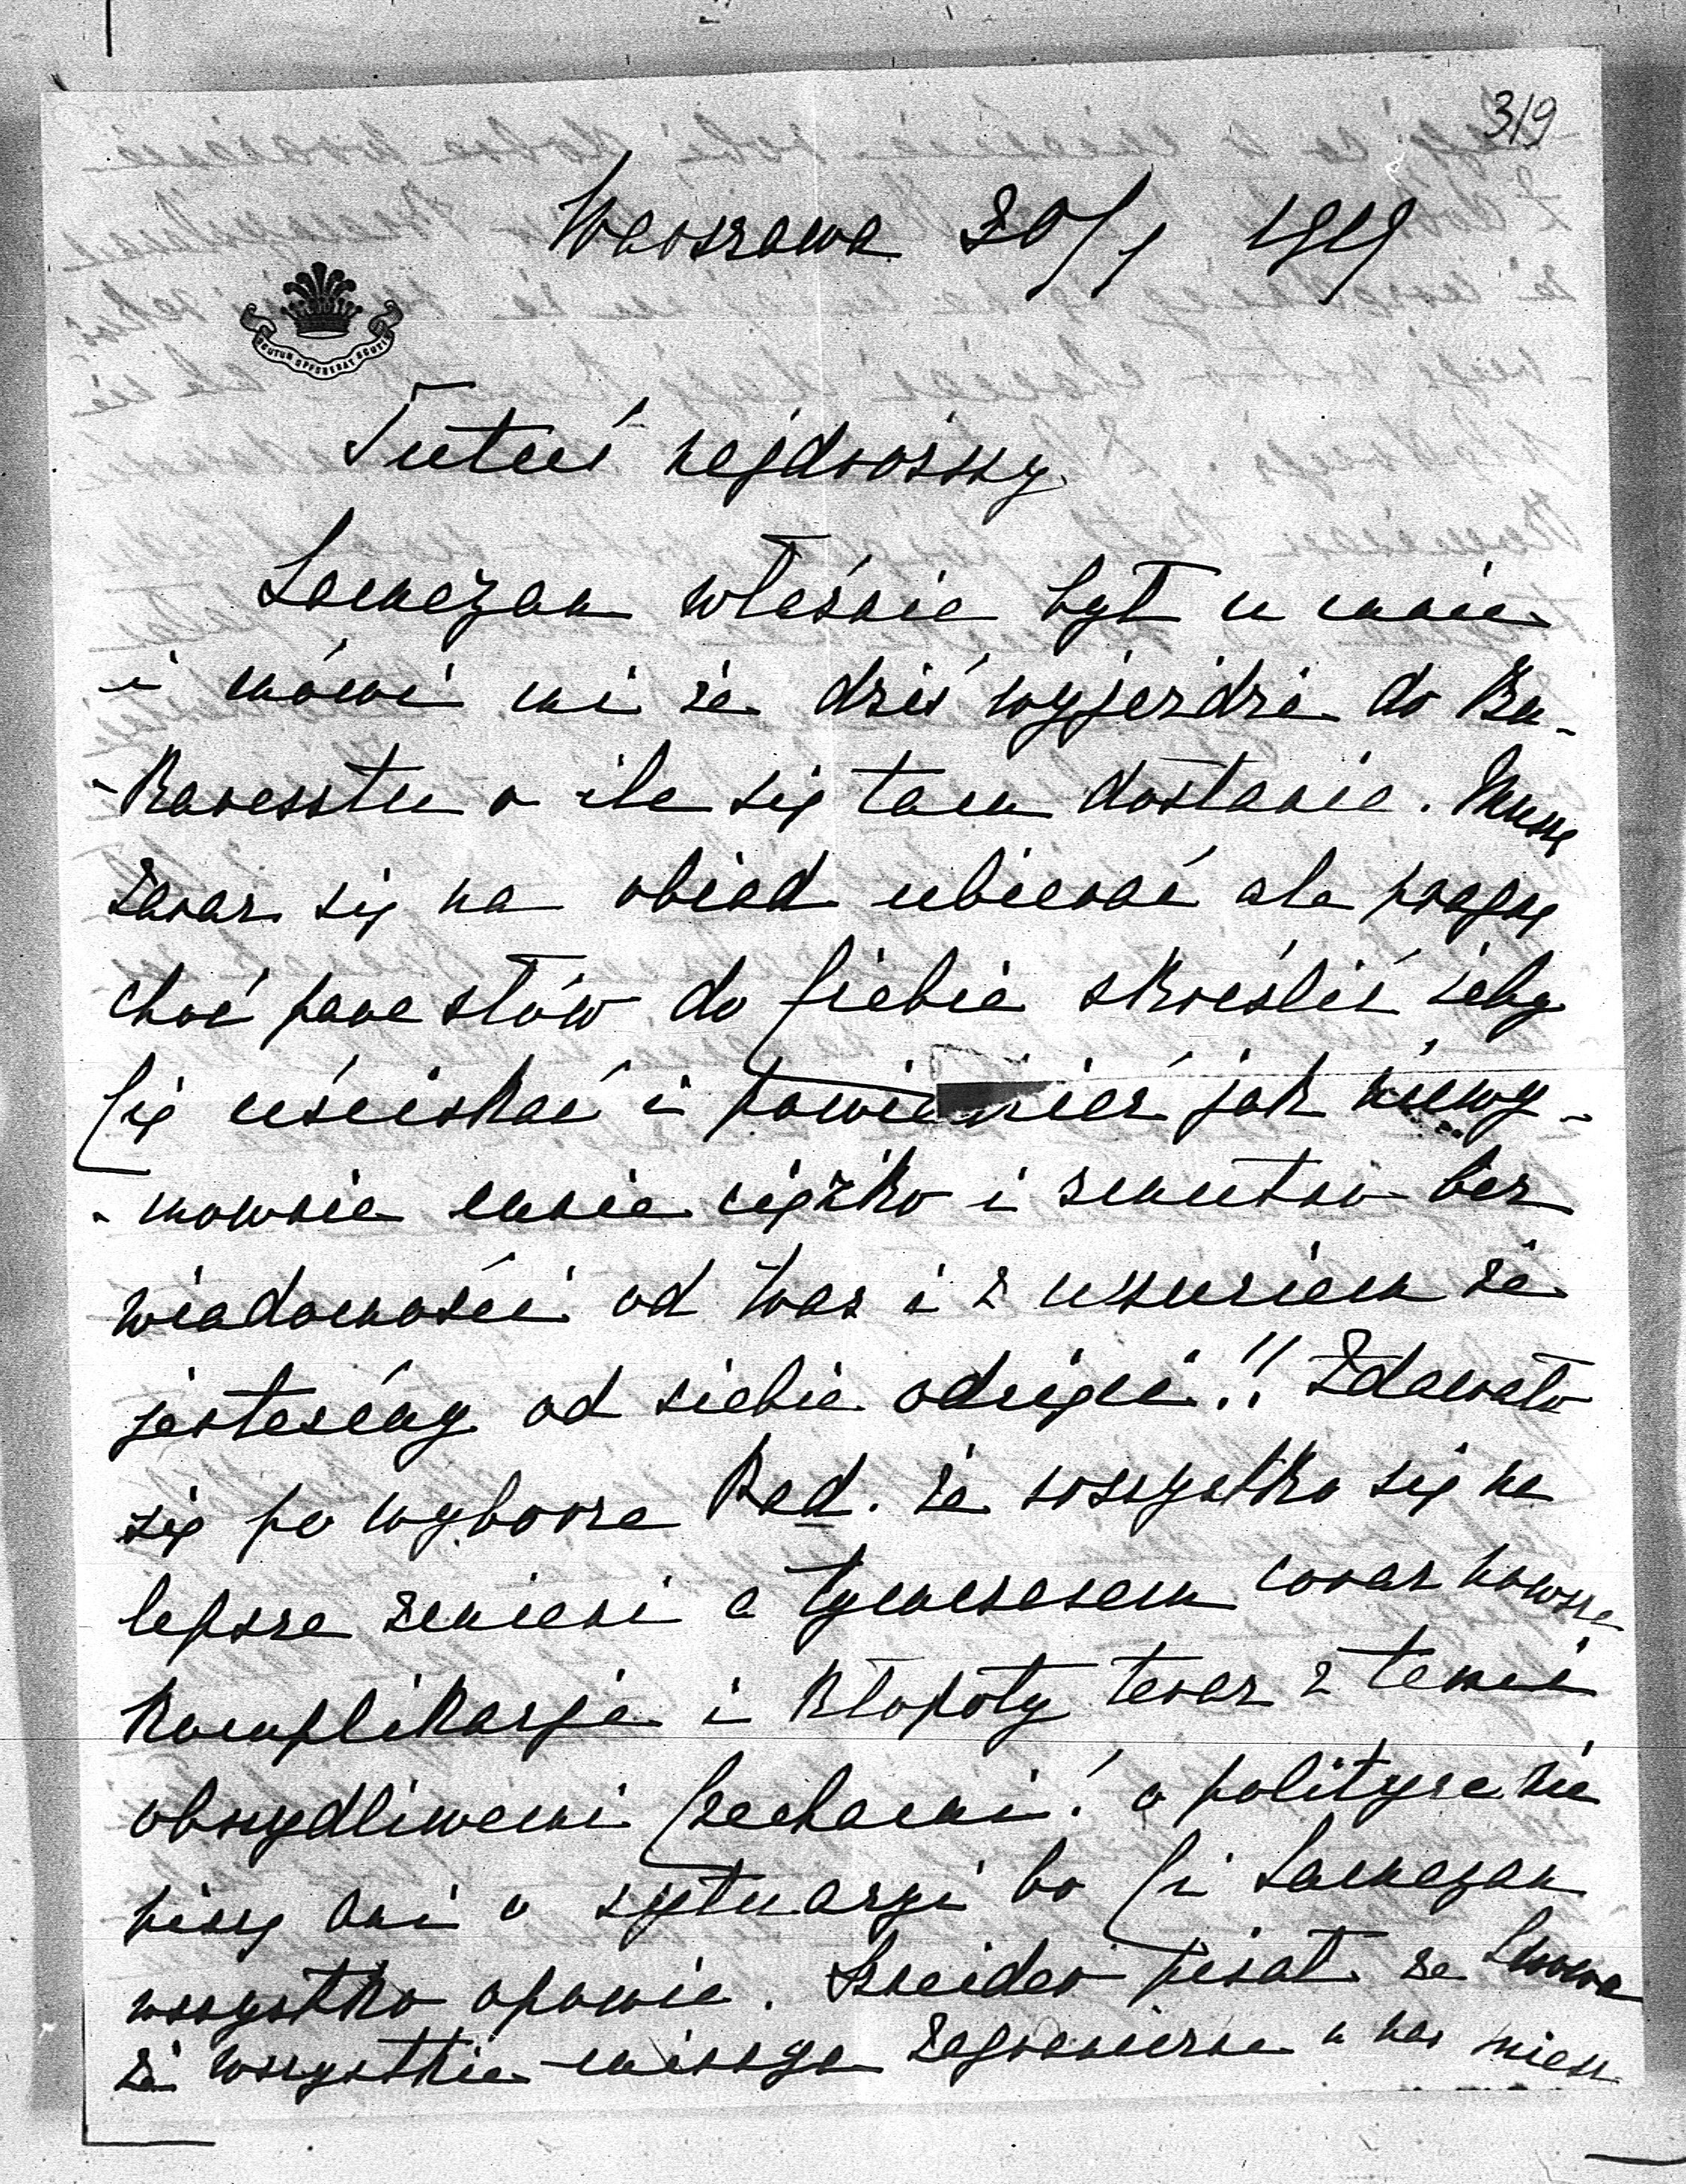 319
Warszawa 30/1 1919
SCUTUM OPPONEBAT SCUTIS
Tutuś najdroższy
Lamezan właśnie był u mnie
i mówi mi że dziś wyjeżdża do Bu-
-karesztu o ile się tam dostanie. Muszę
zaraz się na obiad ubierać ale pragnę
choć parę słów do Ciebie skreślić żeby
Cię uściskać i powiedzieć jak niewy-
-mownie mnie ciężko i smutno bez
wiadomości od Was i z uczuciem że
jesteśmy od siebie odcięci!! Zdawało
się po wyborze Pad. że wszystko się na
lepsze zmieni a tymczasem coraz nowsze
komplikacje i kłopoty teraz z temi
obrzydliwemi Czechami! o polityce nie
piszę ani o sytuacyi bo Ci Lamezan
wszystko opowie. Szneider pisał ze Lwowa
że wszystkie missye zagraniczne u nas miesz